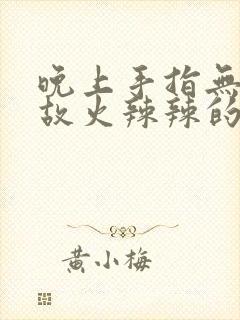 晚上手指無
故火辣辣的
黄小梅